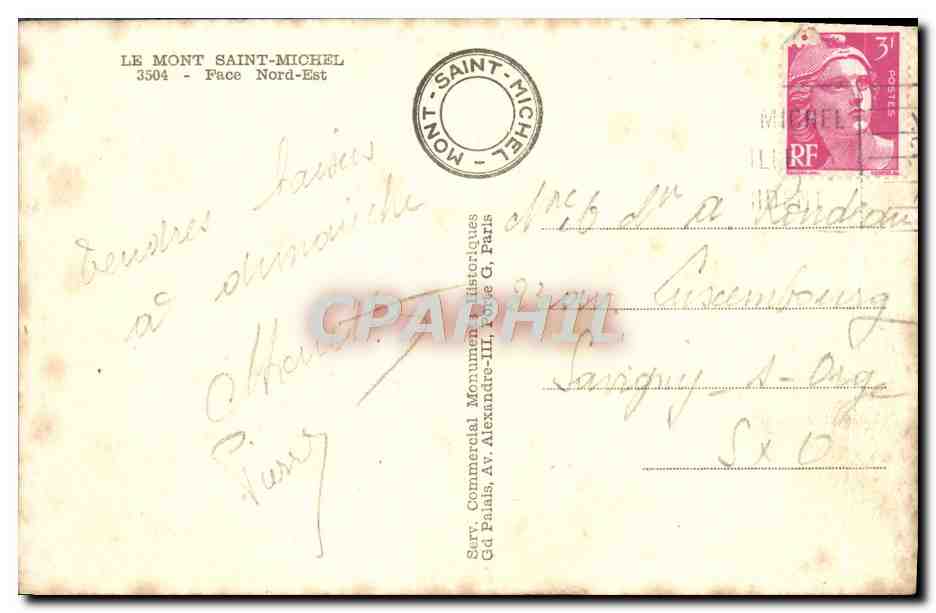 LE MONT SAINT-MICHEL
3504 - Face Nord-Est
MONT-SAINT-MICHEL-
3F
POSTES
RF
MICHEL
Tendres baisers
à dimanche
Pierre
Serv. Commercial Monuments Historiques
Gd Palais, Av. Alexandre-III, Porte G, Paris
CPAPHIL
Luxembourg
Savigny-s-Orge
S x O